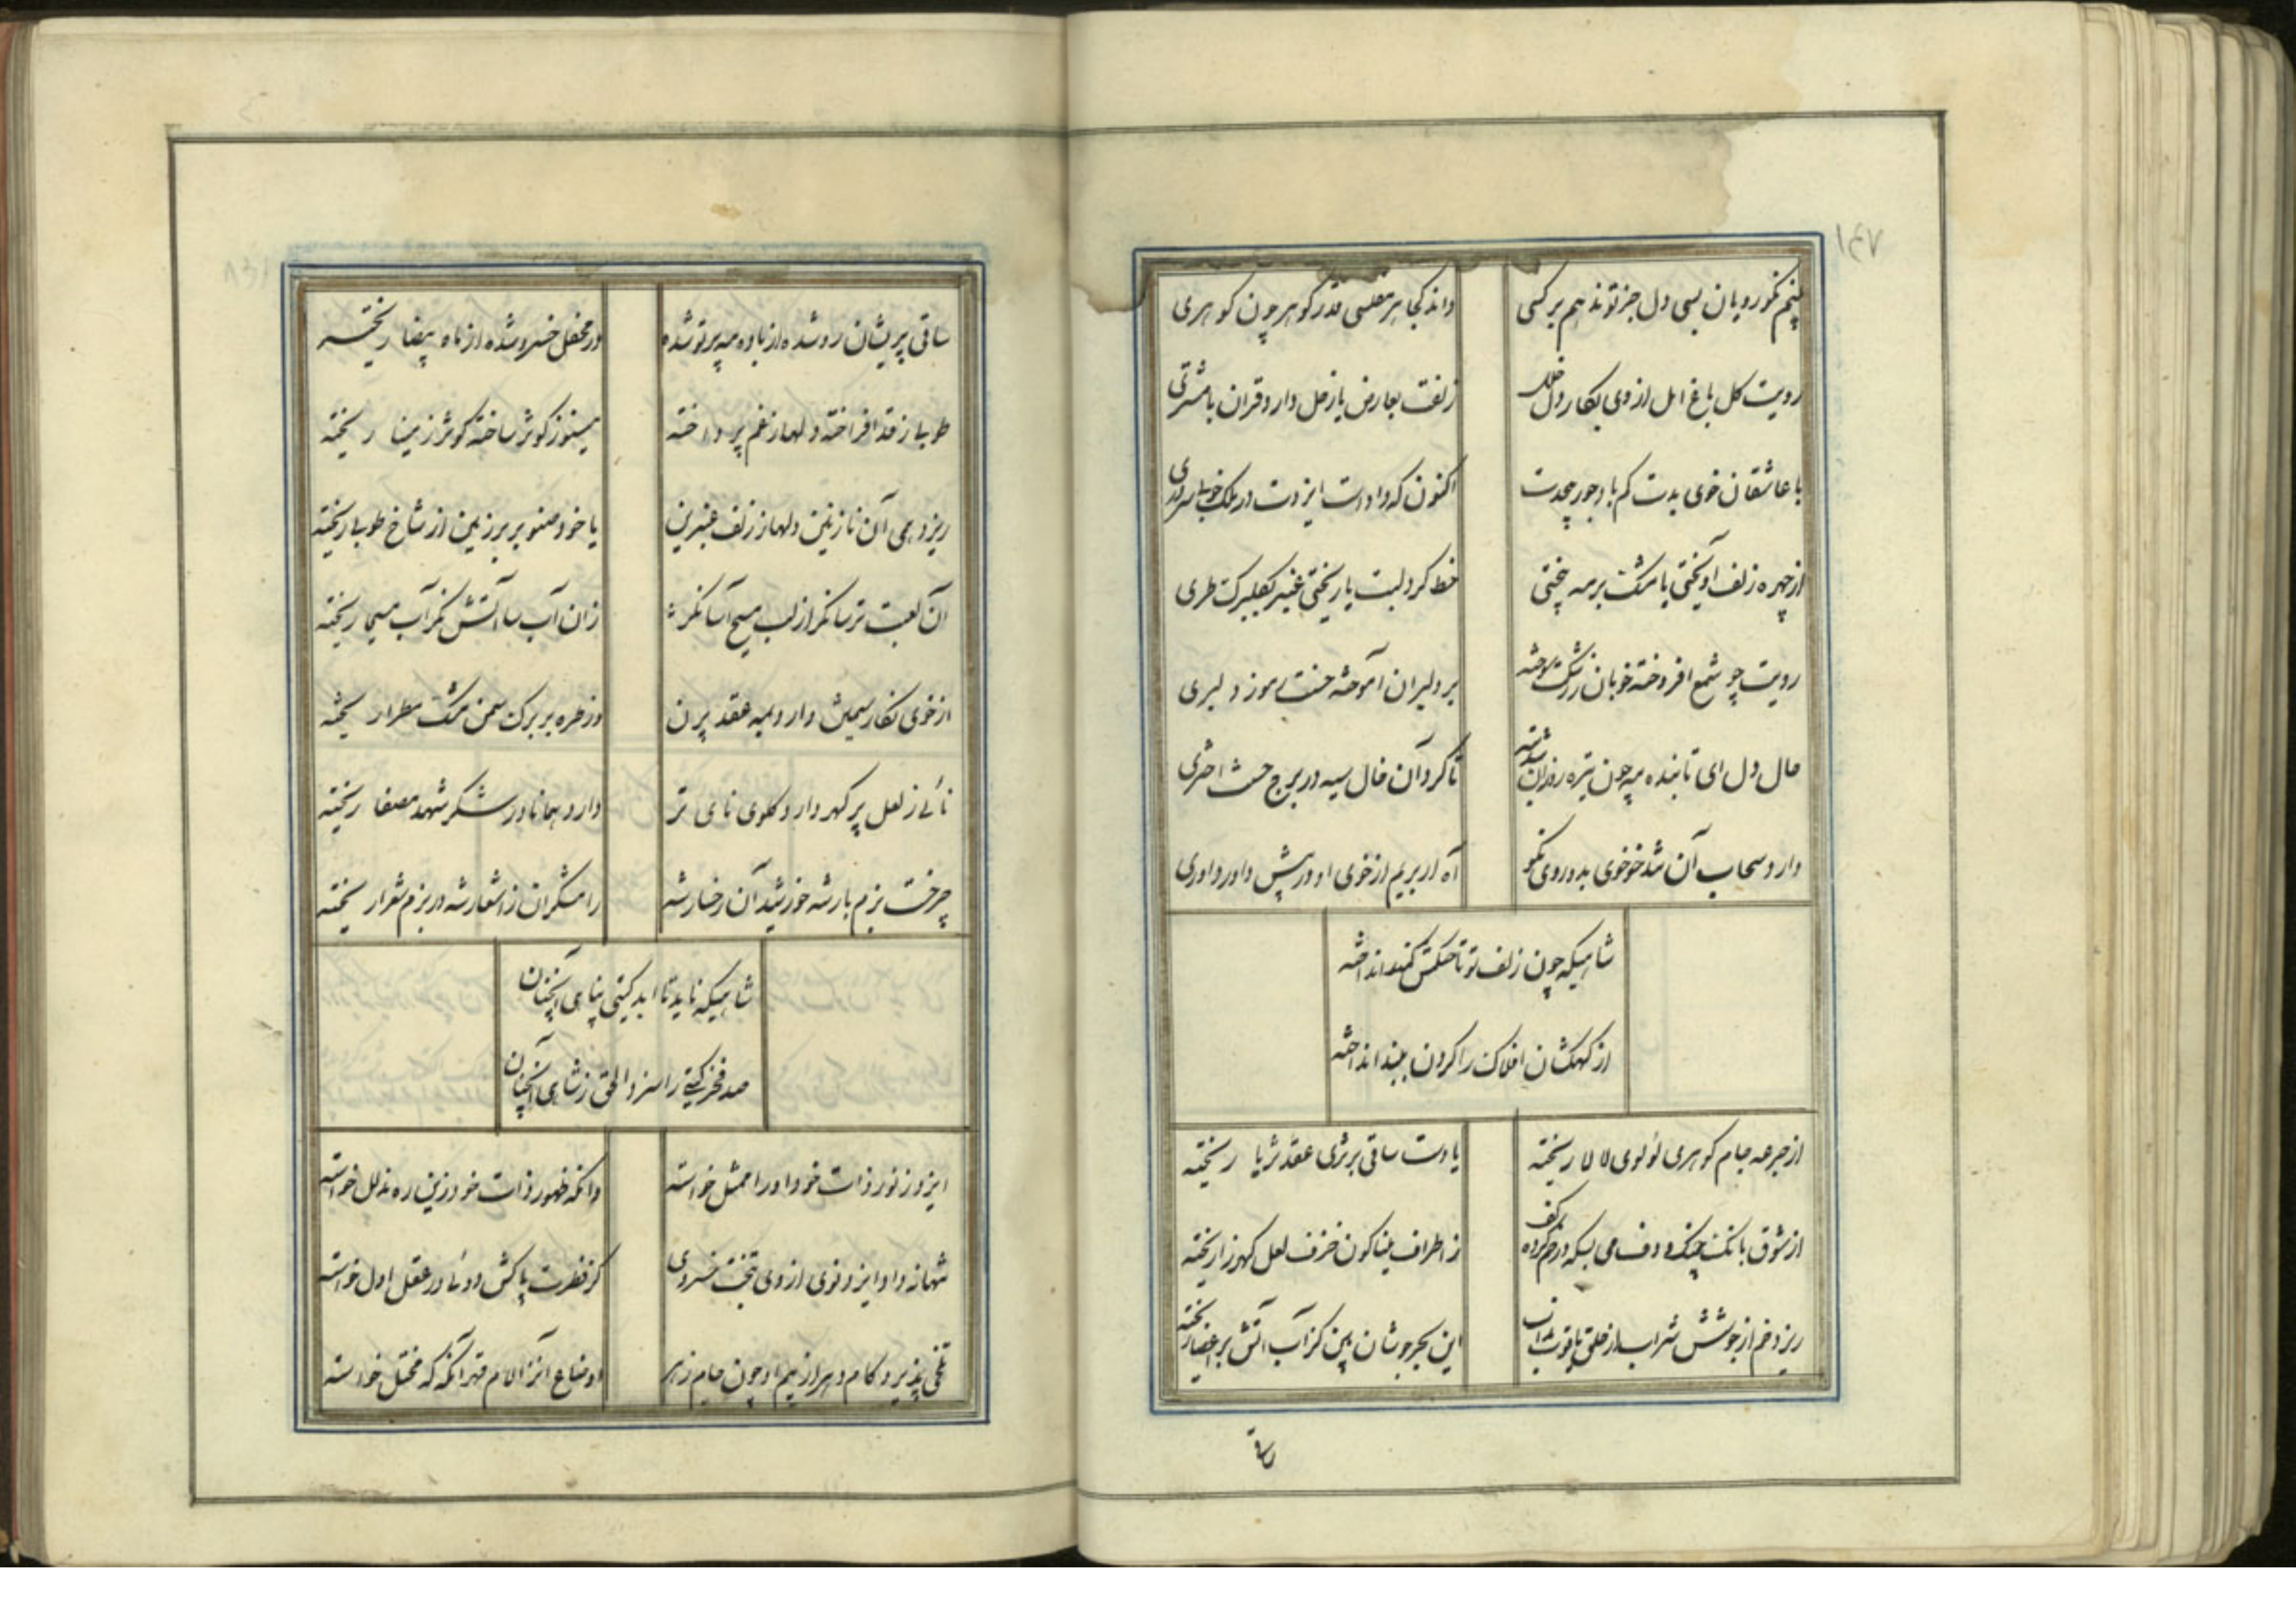 ۱۴۷
بینم نکورویان بسی دل جز تو ندهم بر کسی
داند کجا هر مفلسی قدر گوهر چون گوهری
رویت گل باغ امل از وی بگلزار دل خلل
زلفت بعارض یا زحل دارد قران با مشتری
با عاشقان خوی بدت کم باد جور بیحدت
اکنون که داد است ایزدت در ملک خوبی سروری
از چهره زلف آویختی یا مشک بر مه بیختی
خط گرد لبت یا ریختی عنبر بگلبرگ طری
رویت چو شمع افروخته خوبان ز رشکت سوخته
بر دلبران آموخته حسنت رموز دلبری
حال دل ای تابنده مه چون تیره روزان شد سیه
تا کرد آن خال سیه در برج حسنت اختری
دارد سحاب آن شد خو خوی بد و روی نکو
آه ار بریم از خوی او در پیش داور داوری
شاهیکه چون زلف تو تا حکمش کمند انداخته
از کهکشان افلاک را گردن ببند انداخته
از جرعه جام گوهری لولوی لالا ریخته
یا دست ساقی بر ثری عقد ثریا ریخته
از شوق بانگ چنگ و دف می بسکه در خم کرده کف
ز اطراف میناگون خزف لعل گهرزا ریخته
ریزد خم از جوشش شراب از حلق یاقوت مذاب
این بحر جوشان بین کز آب آتش بر اعضا ریخته
ساقی
ساقی پریشان رو شده از باده مه پرتو شده
در محفل خسرو شده از ماه بیضا ریخته
طوبی ز قد افراخته دلها ز غم پرداخته
مینو ز کوثر ساخته کوثر ز مینا ریخته
ریزد همی آن نازنین دلها ز زلف عنبرین
یا خود صنوبر بر زمین از شاخ طوبی ریخته
آن لعبت ترسا نگر از لب مسیح آسا نگر
زان آب سا آتش نگر آب مسیحا ریخته
از خوی نگار سیمتن دارد بمه عقد پرن
وز طره بر برگ سمن مشک مطرا ریخته
نائی ز لعل پر گهر دارد گلوی نای تر
دارد همانا در شکر شهد مصفا ریخته
چرخست بزم بارشه خورشید آن رخسار شه
رامشگران ز اشعار شه در بزم شعرا ریخته
شاهیکه ناید تا ابد گیتی پناهی آنچنان
صد فخر گیتی را سزد الحق ز شاهی آنچنان
ایزد ز نور ذات خود او را ممثل خواسته
وانگه ظهور ذات خود زین ره مدلل خواسته
شهانه داد ایزد نوی از وی بتخت خسروی
کز فطرت پاکش دوئی در عقل اول خواسته
تلخی پذیرد کام دهر از بیم او چون جام زهر
اوضاع انزالام قهر آنگه که مختل خواسته